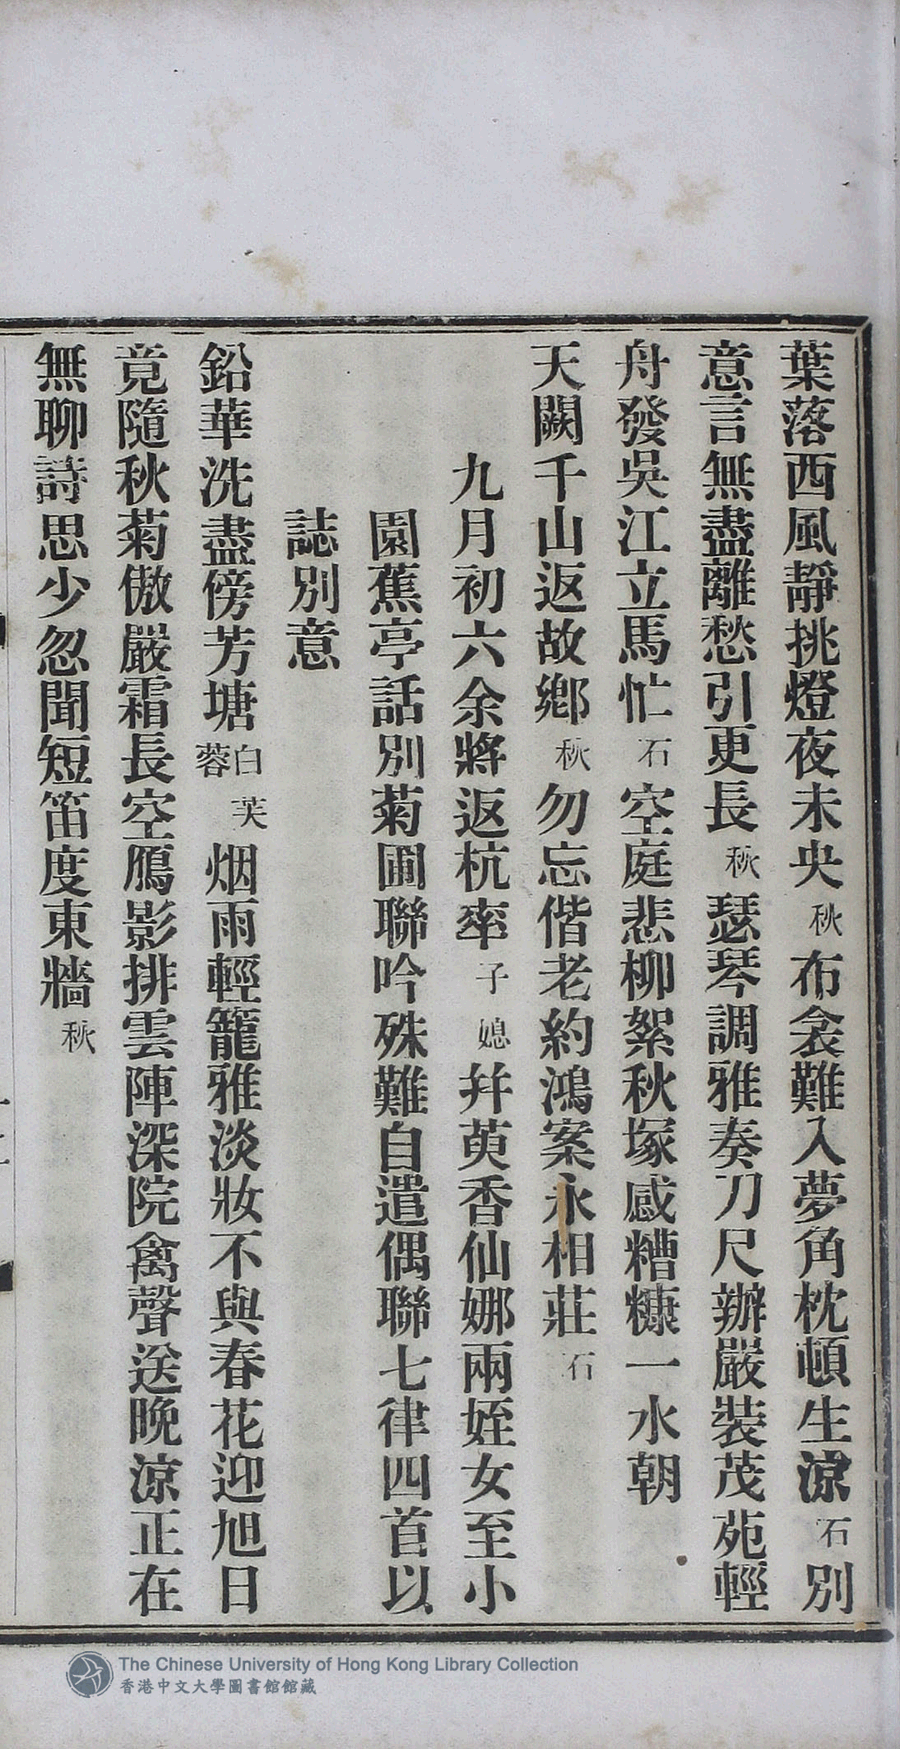 葉落西風靜挑燈夜未央秋布衾難入夢角枕頓生涼石別
意言無盡離愁引更長秋瑟琴調雅奏刀尺辦嚴裝茂苑輕
舟發吳江立馬忙石空庭悲柳絮秋塚感糟糠一水朝
天闕千山返故鄉秋勿忘偕老約鴻案永相莊石
九月初六余將返杭率子媳幷萸香仙娜兩姪女至小
園蕉亭話別菊圃聯吟殊難自遣偶聯七律四首以
誌別意
鉛華洗盡傍芳塘白芙蓉烟雨輕籠雅淡妝不與春花迎旭日
竟隨秋菊傲嚴霜長空鴈影排雲陣深院禽聲送晚涼正在
無聊詩思少忽聞短笛度東牆秋
The Chinese University of Hong Kong Library Collection
香港中文大學圖書館館藏